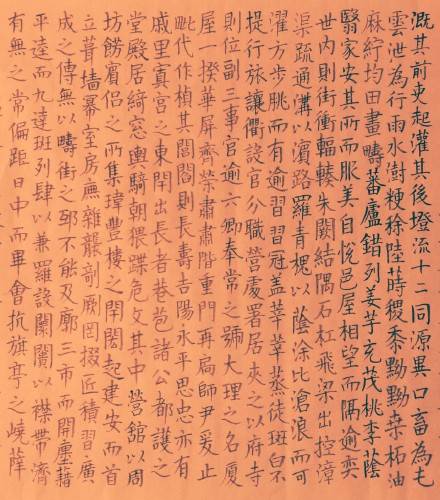 溉其前史起灌其後墱流十二同源異口畜為屯
雲泄為行雨水澍粳稌陸蒔稷黍黝黝桑柘油
麻紵均田畫疇蕃廬錯列姜芋充茂桃李蔭
翳家安其所而服美自悅邑屋相望而隔逾奕
世內則街衝輻輳朱闕結隅石杠飛梁出控漳
渠疏通溝以濱路羅青槐以蔭涂比滄浪而可
濯方步而有逾習習冠蓋莘莘蒸徒斑白不
提行旅讓衢設官分職營處署居夾之以府寺
則位副三事官逾六卿奉常之號大理之名廈
屋一揆華屏齊榮肅肅階重門再扃師尹爰止
毗代作楨其閭閻則長壽吉陽永平思忠亦有
戚里窴宮之東閈出長者巷苞諸公都護之
堂殿居綺窗輿騎朝猥蹀危文其中營舘以周
坊餝賓侶之所集瑋豐樓之閈閎起建安而首
立葺墻冪室房廡雜襲剞劂罔掇匠積習廣
成之傳無以疇街之邸不能及廓三市而開廛藉
平逵而九達班列肆以兼羅設闤闠以襟帶濟
有無之常偏距日中而畢會抗旗亭之嶢嶭